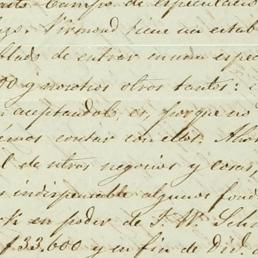 vasto campo de especulacio
Virmond tiene un estab
blado de entrar en una espec
00 y nosotros otros tantos:
aceptandolo, es, porque no
emos contar con ellos. Ahor
l de otros negocios y cosas,
s indispensable algunos fond
en poder de
f 33.600 y en fin de Div.